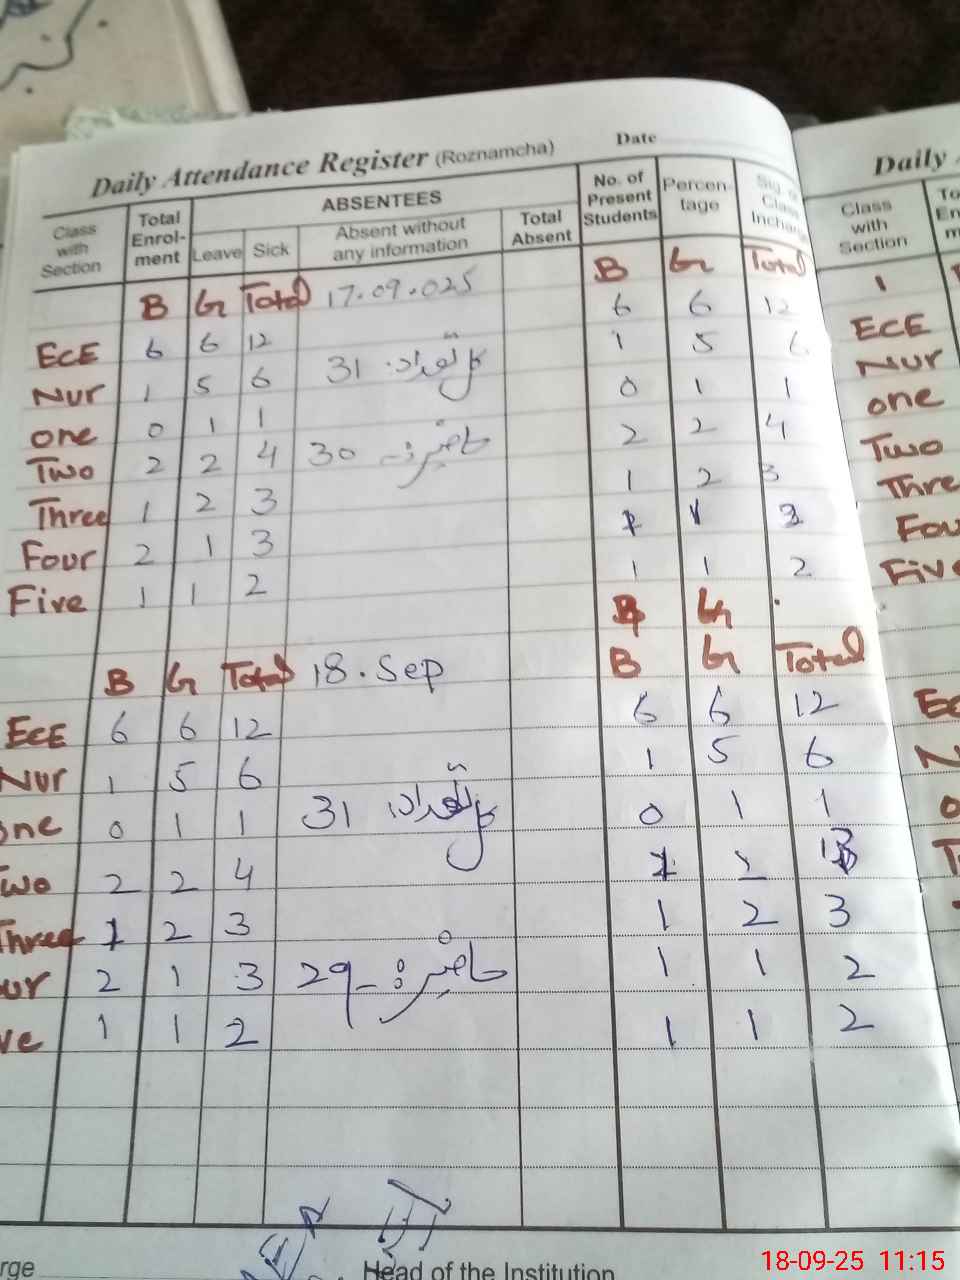 Date
Daily Attendance Register (Roznamcha)
Class with Section
Total Enrol-ment
ABSENTEES
Leave
Sick
Absent without any information
Total Absent
No. of Present Students
Percen-tage
Class
B G Total 17.09.025 B G Total
6 6 12
ECE 6 6 12 1 5 6
Nur 1 5 6 کل تعداد 31 0 1 1
one 0 1 1 2 2 4
Two 2 2 4 حاضر 30 1 2 3
Three 1 2 3
Four 2 1 3 1 1 2
Five 1 1 2 B G
B G Total 18. Sep B G Total
ECE 6 6 12 6 6 12
Nur 1 5 6 1 5 6
one 0 1 1 کل تعداد 31 0 1 1
Two 2 2 4
Three 1 2 3 1 2 3
our 2 1 3 حاضر 29 1 1 2
ve 1 1 2 1 1 2
rge
Head of the Institution
Daily
Class with Section
To
En
m
1
ECE
Nur
one
Two
Thre
Fou
Five
18-09-25 11:15